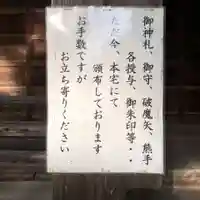 御神札、御守、破魔矢、熊手
各授与、御朱印等・・
ただ今、本宅にて
頒布しております
お手数ですが
お立ち寄りください